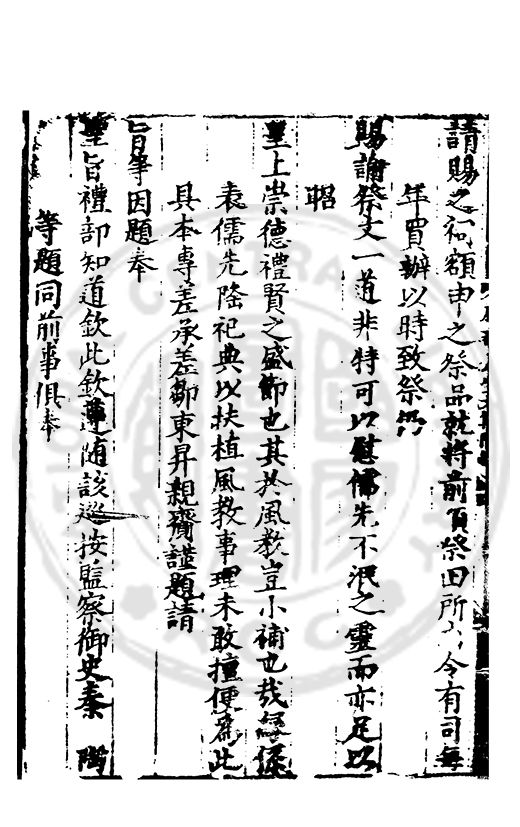 請賜之祠額申之祭品就將前項祭田所入令有司每
年買辦以時致祭仍
賜諭祭文一道非特可以慰儒先不泯之靈而亦足以
昭
皇上崇德禮賢之盛節也其於風教豈小補也哉緣係
表儒先隆祀典以扶植風教事理未敢擅便爲此
具本專差承差鄒東昇親齎謹題請
旨等因題奉
聖旨禮部知道欽此欽遵隨該巡按監察御史秦
等題同前事俱奉